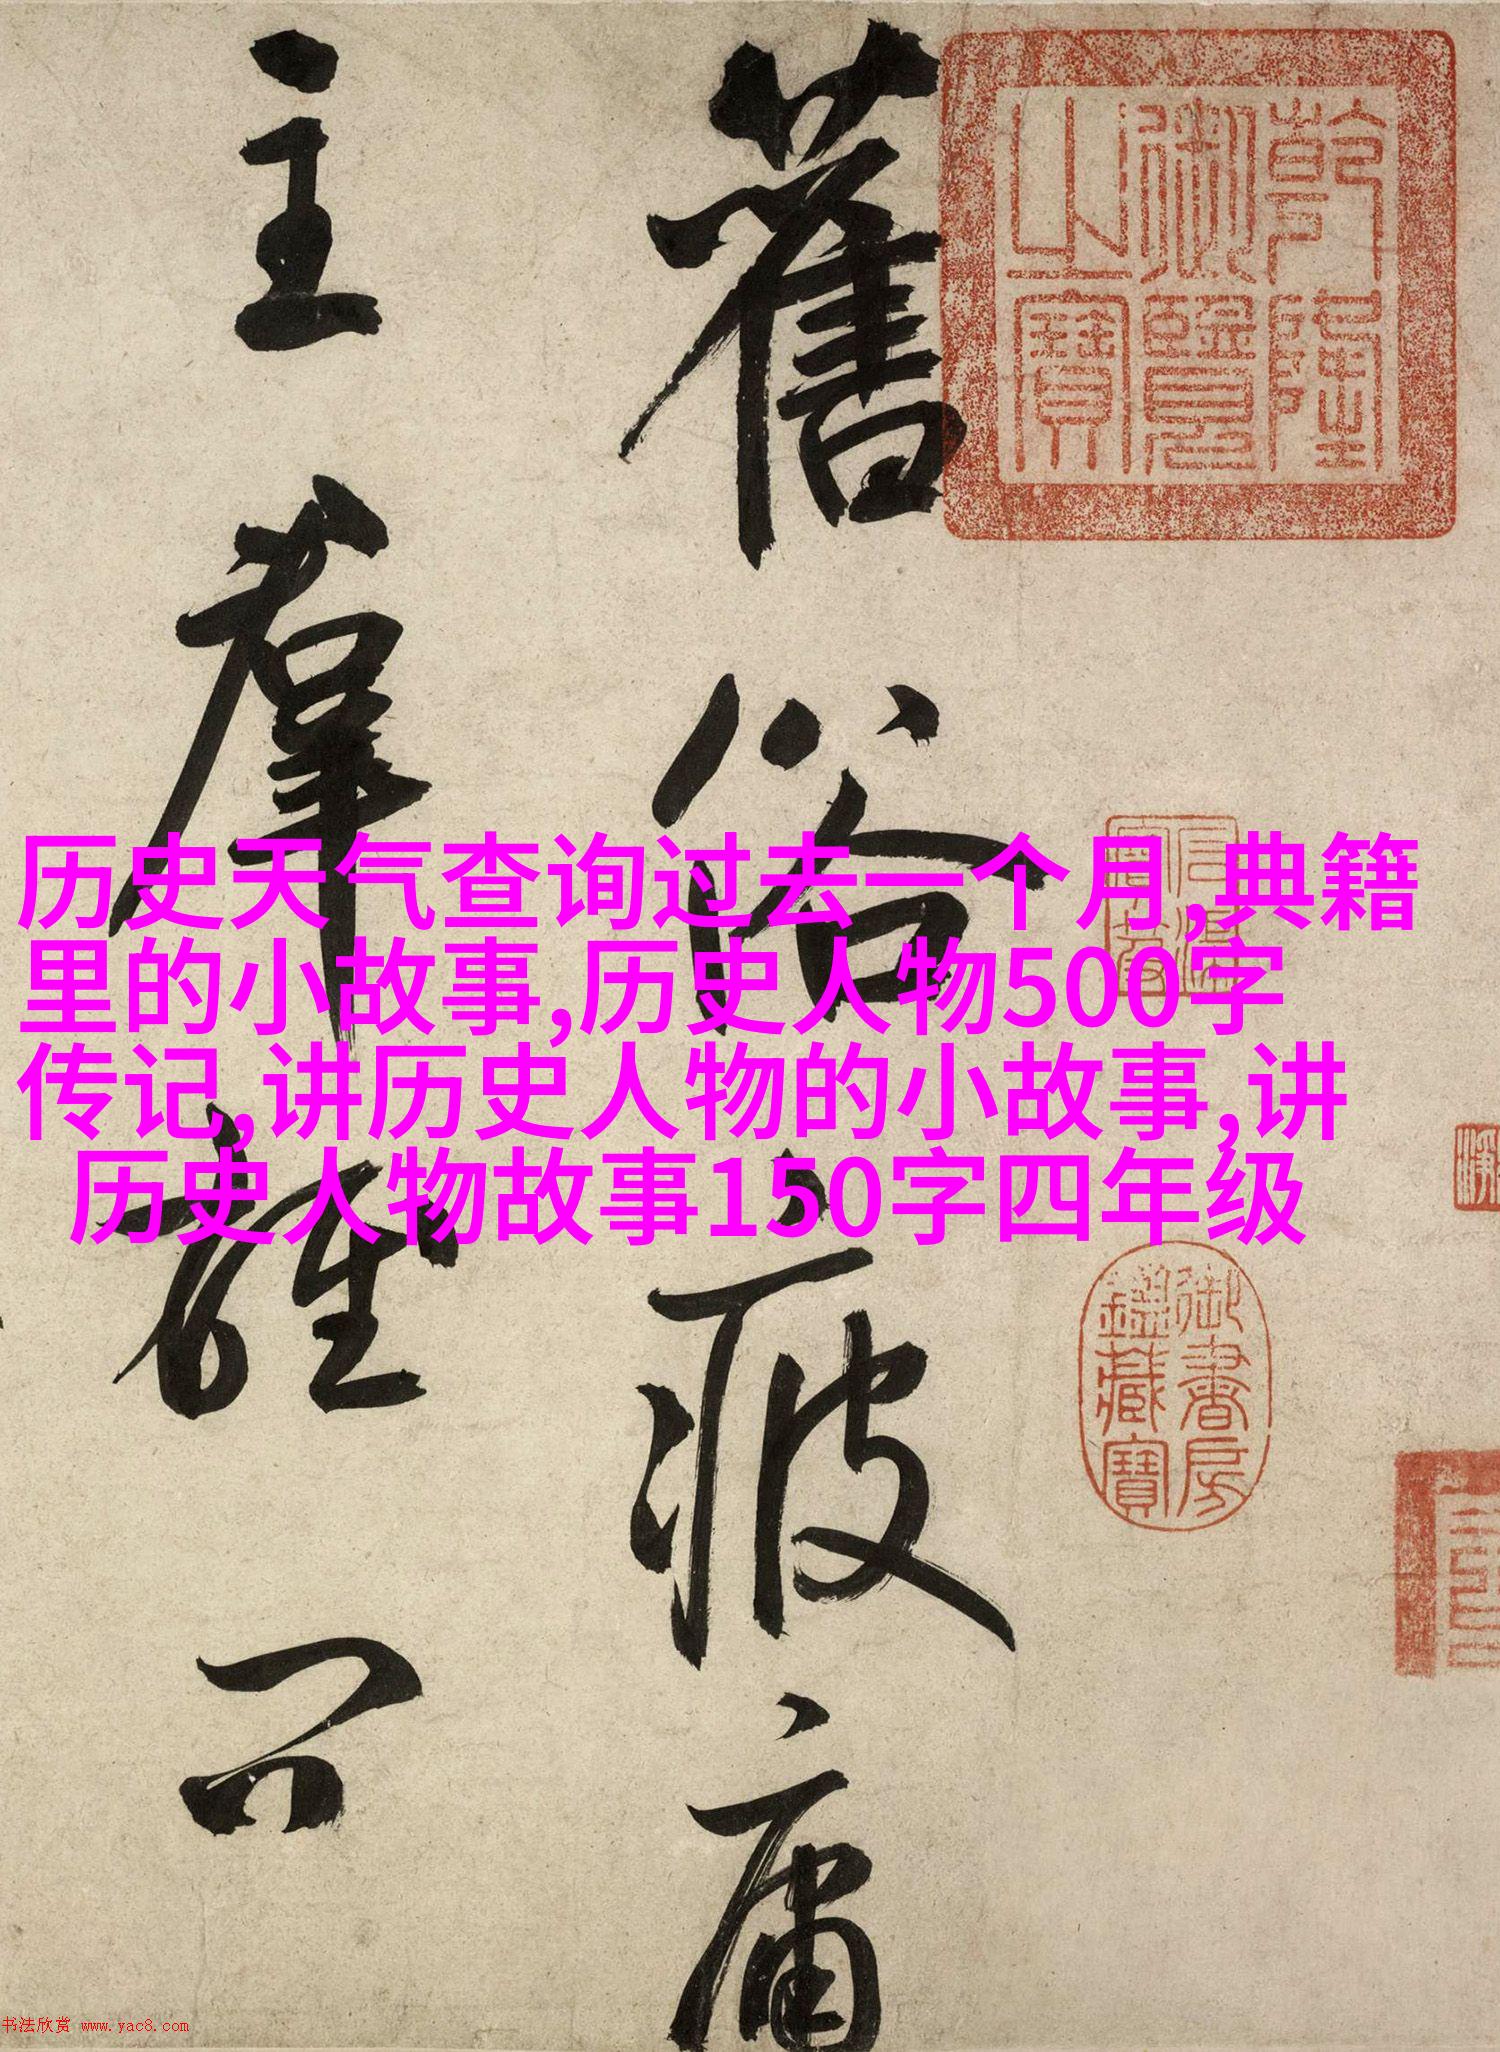 乾隆
御覽
之寶
舊俗疲庸
主羣雄問
历史天气查询过去一个月,典籍
里的小故事,历史人物500字
传记,讲历史人物的小故事,讲
历史人物故事150字四年级
御書房
鑑藏寶
书法欣赏 www.yac8.com